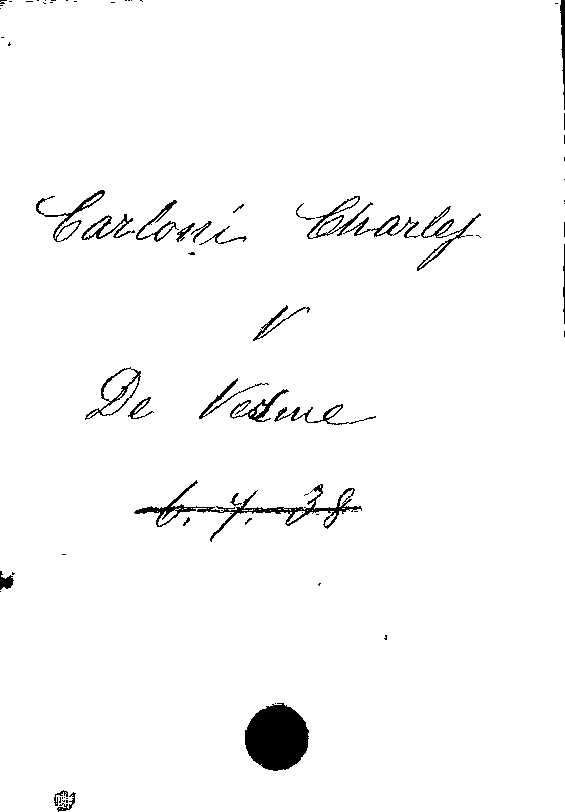 Carloni Charley
V
De Vesme
6.7.38